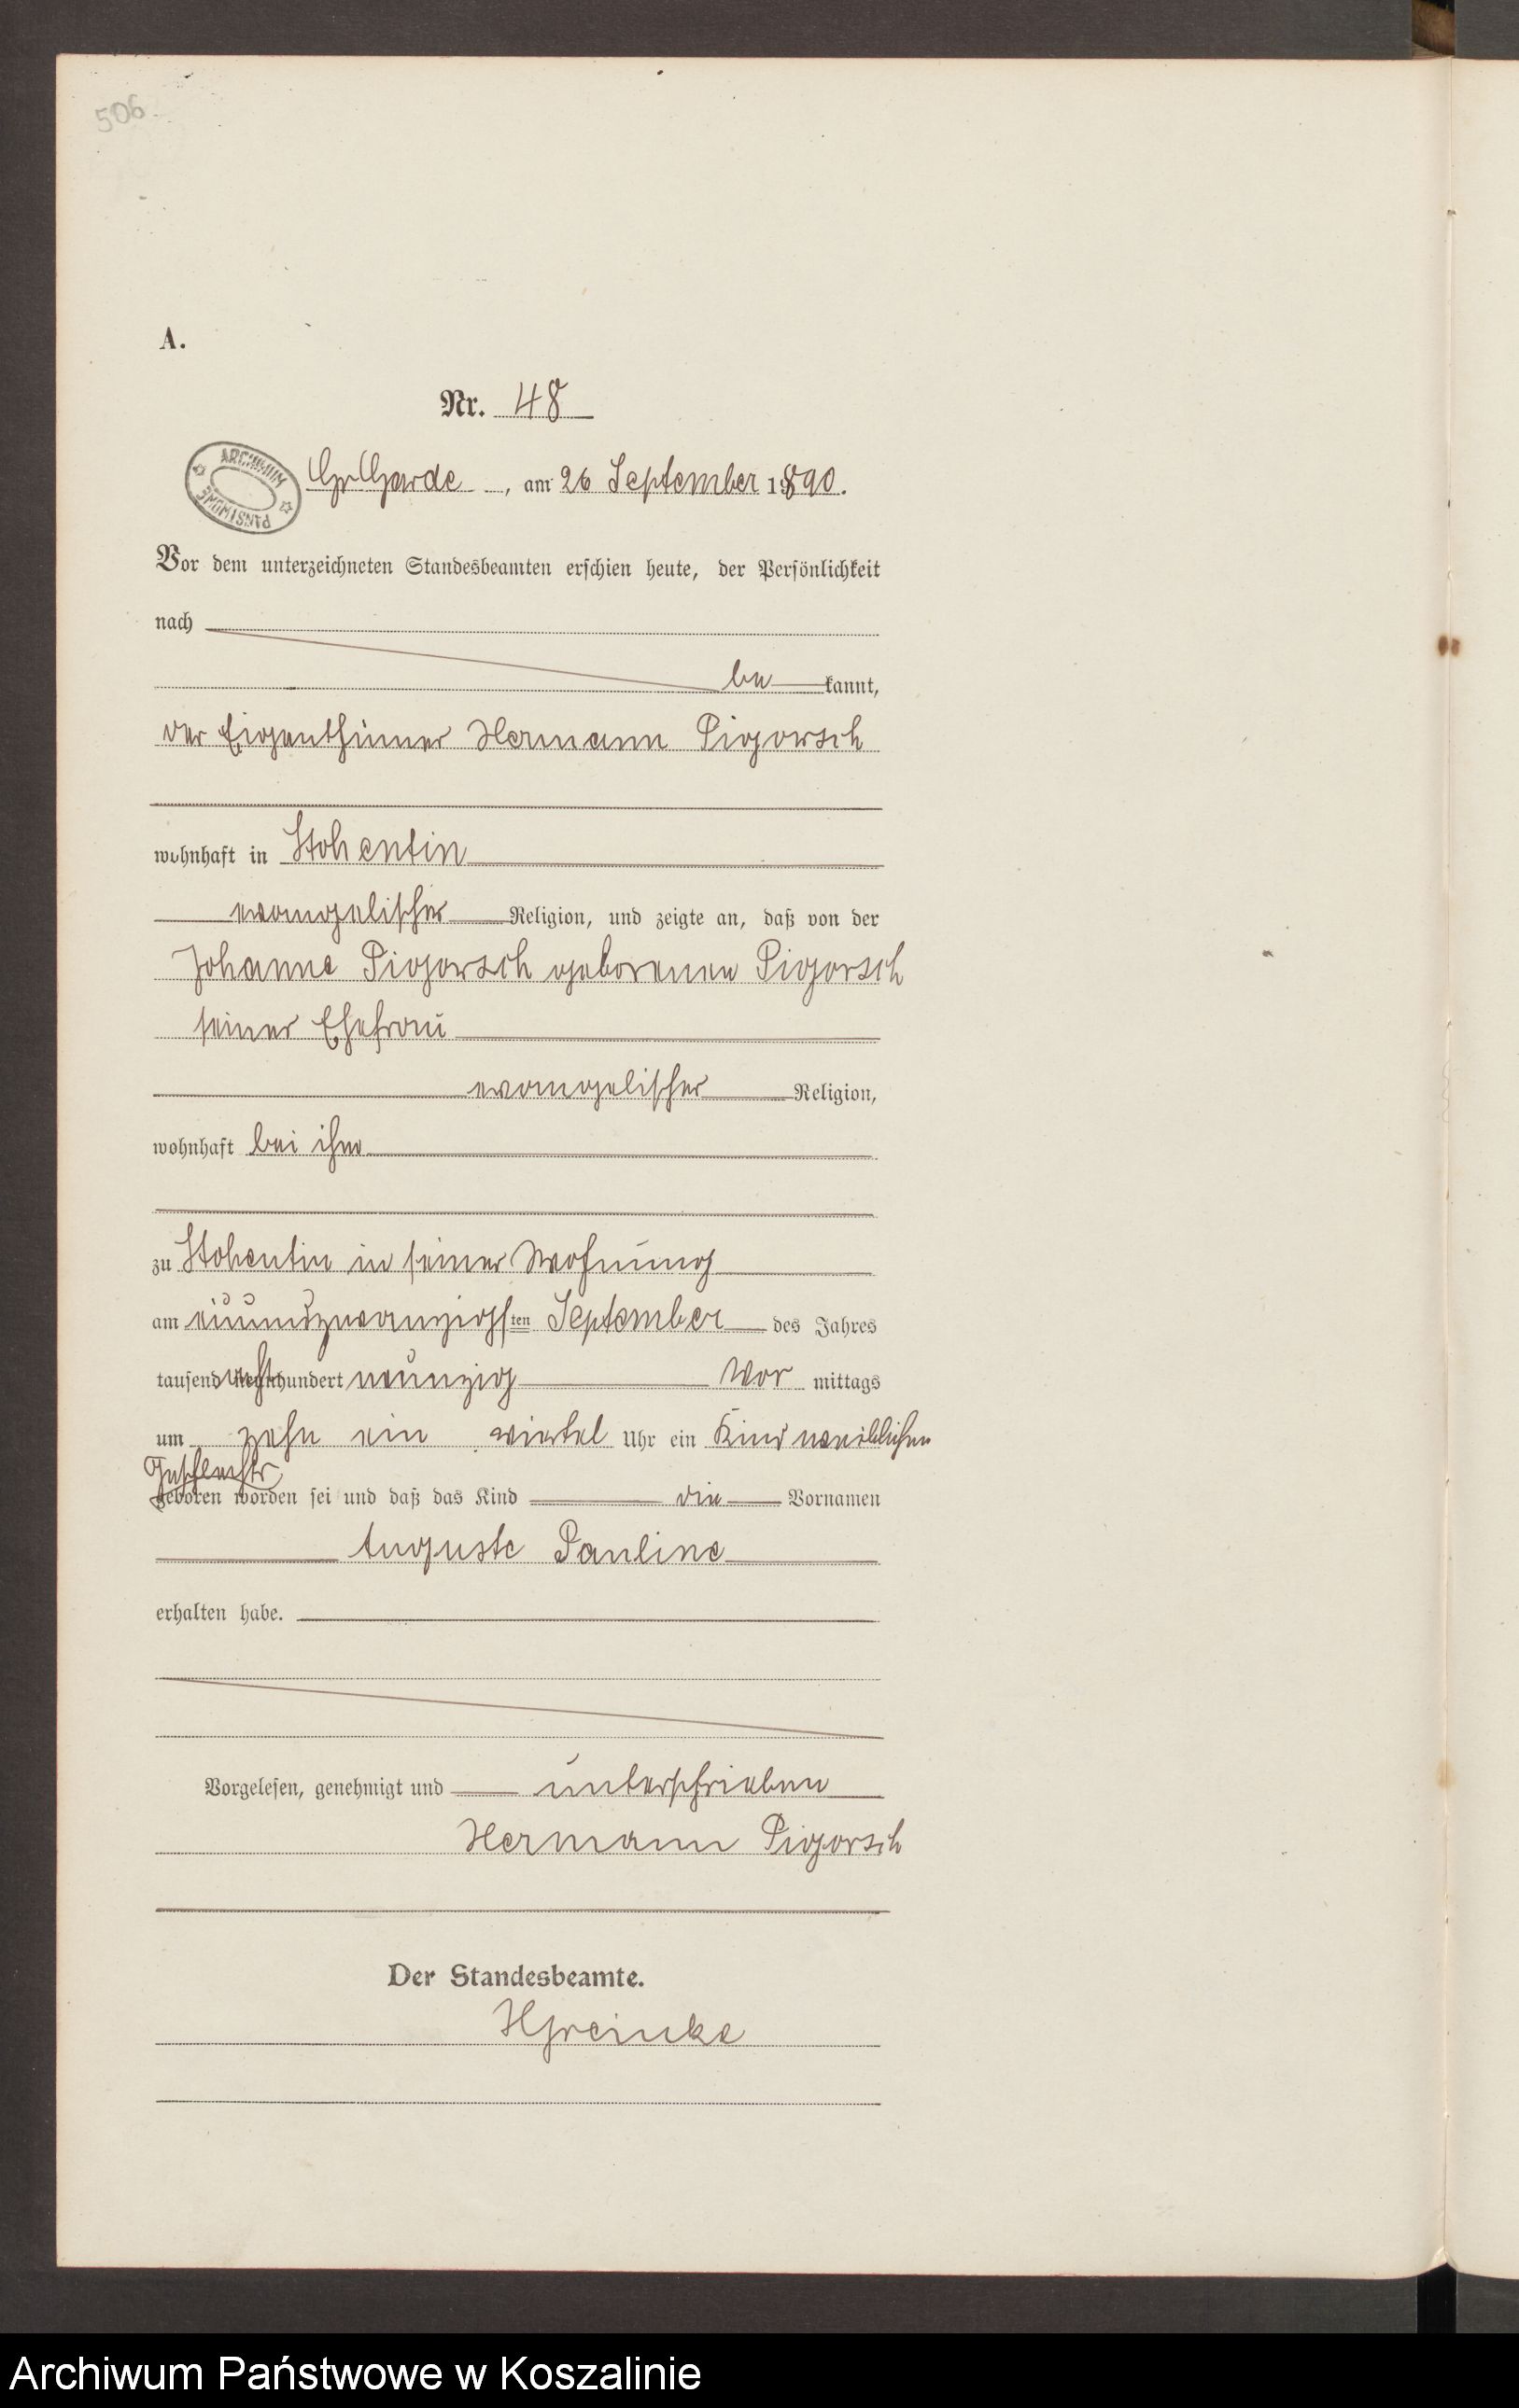 506.
A.
Nr. 48
ARCHIWUM PAŃSTWOWE
Gr Garde, am 26 September 1890.
Vor dem unterzeichneten Standesbeamten erschien heute, der Persönlichkeit
nach
be kannt,
der Eigenthümer Hermann Pigorsch
wohnhaft in Stohentin
evangelischer Religion, und zeigte an, daß von der
Johanne Pigorsch geborenen Pigorsch
seiner Ehefrau
evangelischer Religion,
wohnhaft bei ihm
zu Stohentin in seiner Wohnung
am einundzwanzigsten September des Jahres
tausend achthundert neunzig Vor mittags
um zehn ein viertel Uhr ein Kind weiblichen
Geschlechts
geboren worden sei und daß das Kind die Vornamen
Auguste Pauline
erhalten habe.
Vorgelesen, genehmigt und unterschrieben
Hermann Pigorsch
Der Standesbeamte.
HGreinke
Archiwum Państwowe w Koszalinie